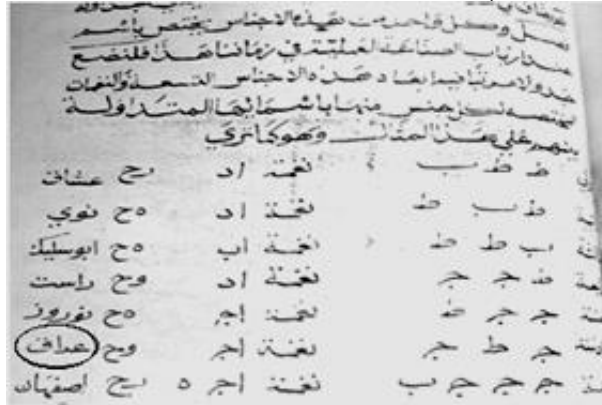 نعمل وكل واحد من هذه الاجناس يختص باسم
عند ارباب الصناعة العملية في زماننا هذا فلنضع
جدولا مرتبا فيه ابعاد هذه الاجناس التسعة والنغمات
لكل جنس منها باسمائها المتداولة
بينهم على هذا المثال وهو كما ترى
ط ط ب نغمة اد ح عشاق
ط ب ط نغمة اد ه ح نوي
ب ط ط نغمة اب ه ح ابوسليك
ط ج ج نغمة اد وح راست
ج ج ط نغمة اج ه ح نوروز
ج ط ج نغمة اج وح عراق
ج ج ج ب نغمة اج ه ح اصفهان